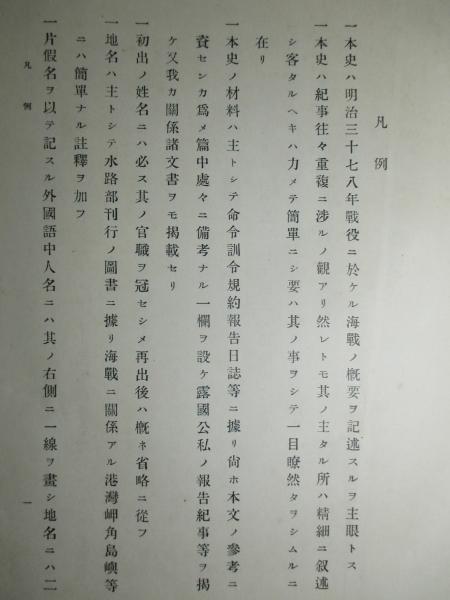 凡例
一本史ハ明治三十七八年戰役ニ於ケル海戰ノ槪要ヲ記述スルヲ主眼トス
一本史ハ紀事往々重複ニ涉ルノ觀アリ然レトモ其ノ主タル所ハ精細ニ叙述
シ客タルヘキハ力メテ簡單ニシ要ハ其ノ事ヲシテ一目瞭然タラシムルニ
在リ
一本史ノ材料ハ主トシテ命令訓令規約報告日誌等ニ據リ尙ホ本文ノ參考ニ
資センカ爲メ篇中處々ニ備考ナル一欄ヲ設ケ露國公私ノ報告紀事等ヲ揭
ケ又我カ關係諸文書ヲモ揭載セリ
一初出ノ姓名ニハ必ス其ノ官職ヲ冠セシメ再出後ハ槪ネ省略ニ從フ
一地名ハ主トシテ水路部刊行ノ圖書ニ據リ海戰ニ關係アル港灣岬角島嶼等
ニハ簡單ナル註釋ヲ加フ
一片假名ヲ以テ記スル外國語中人名ニハ其ノ右側ニ一線ヲ畫シ地名ニハ二
凡例
一